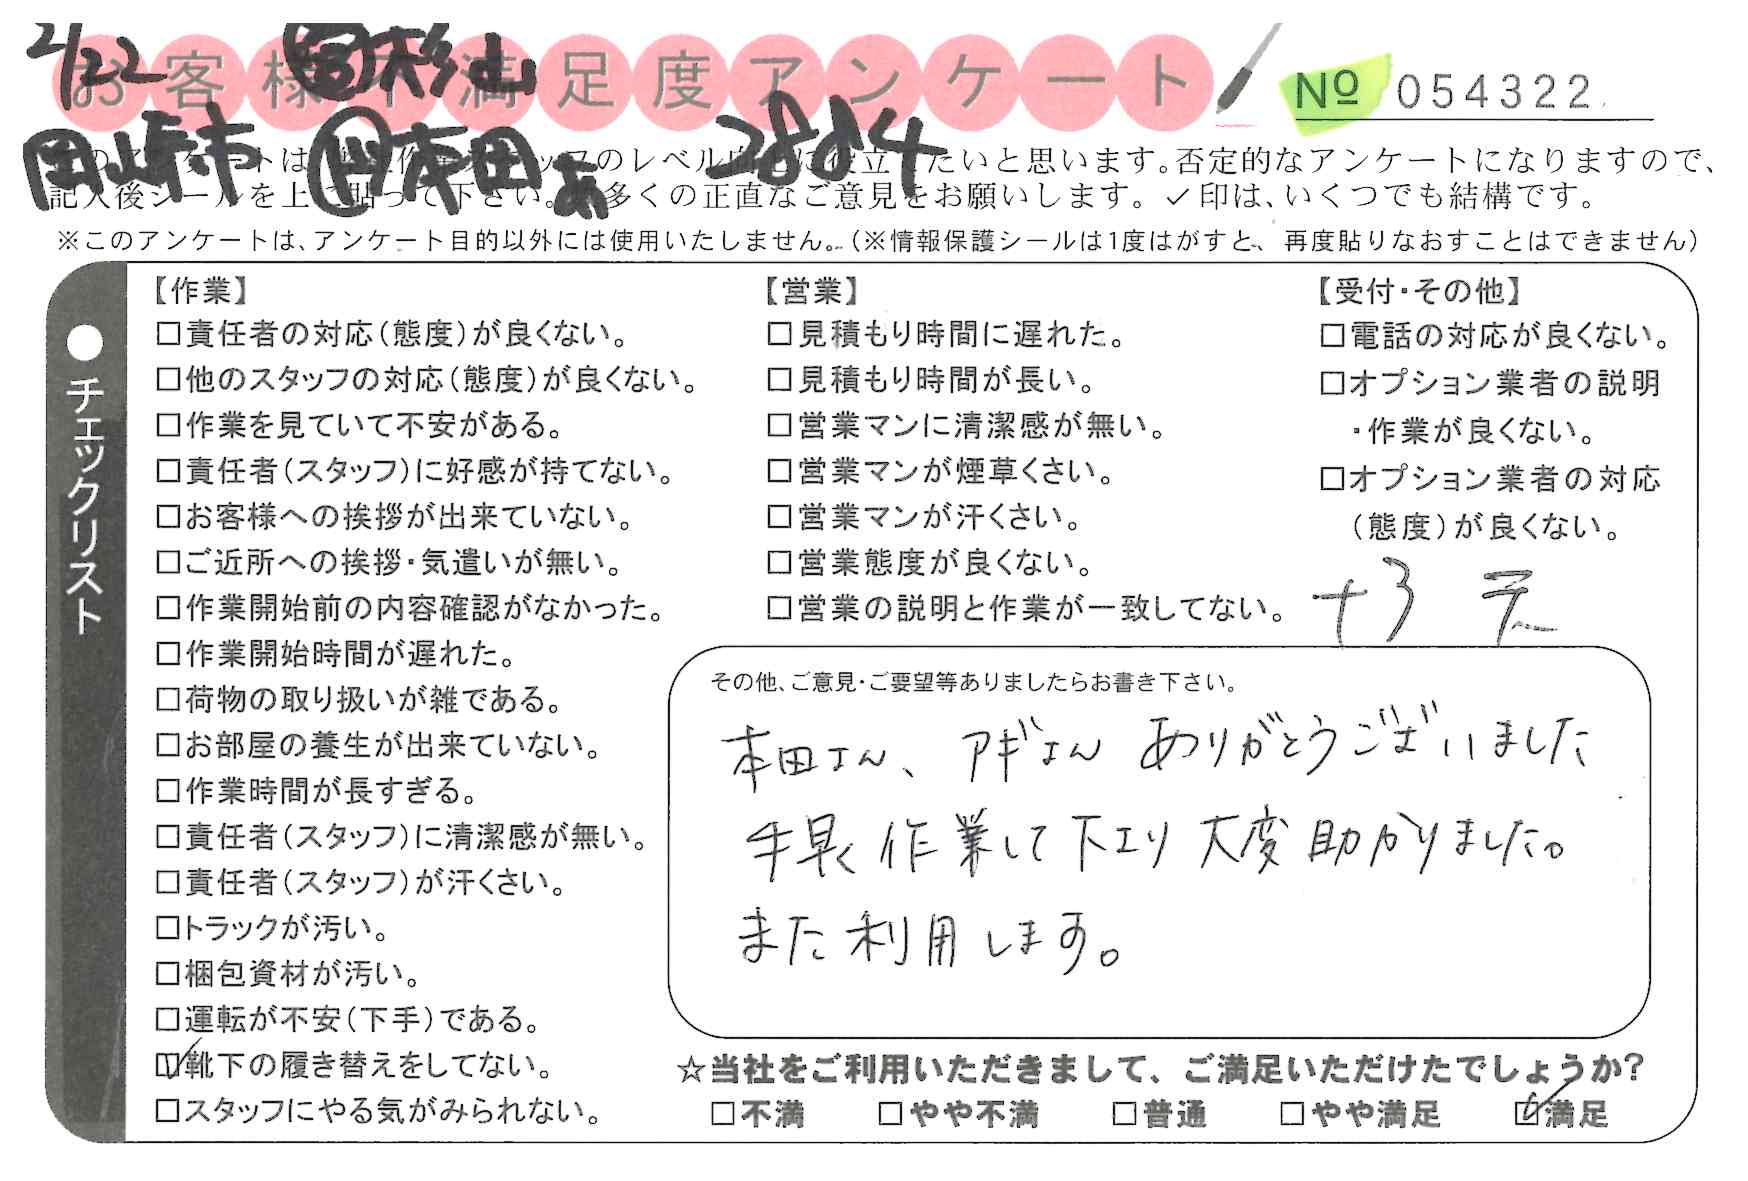 2/22 営杉山
お客様不満足度アンケート
№ 054322
岡崎市 本田 あ 2884
のレベル たいと思います。否定的なアンケートになりますので、
記入後シールを上に貼って下さい。 多くの正直なご意見をお願いします。✓印は、いくつでも結構です。
※このアンケートは、アンケート目的以外には使用いたしません。(※情報保護シールは1度はがすと、再度貼りなおすことはできません)
●チェックリスト
【作業】
□責任者の対応(態度)が良くない。
□他のスタッフの対応(態度)が良くない。
□作業を見ていて不安がある。
□責任者(スタッフ)に好感が持てない。
□お客様への挨拶が出来ていない。
□ご近所への挨拶・気遣いが無い。
□作業開始前の内容確認がなかった。
□作業開始時間が遅れた。
□荷物の取り扱いが雑である。
□お部屋の養生が出来ていない。
□作業時間が長すぎる。
□責任者(スタッフ)に清潔感が無い。
□責任者(スタッフ)が汗くさい。
□トラックが汚い。
□梱包資材が汚い。
□運転が不安(下手)である。
☑靴下の履き替えをしてない。
□スタッフにやる気がみられない。
【営業】
□見積もり時間に遅れた。
□見積もり時間が長い。
□営業マンに清潔感が無い。
□営業マンが煙草くさい。
□営業マンが汗くさい。
□営業態度が良くない。
□営業の説明と作業が一致してない。
【受付・その他】
□電話の対応が良くない。
□オプション業者の説明
・作業が良くない。
□オプション業者の対応
(態度)が良くない。
+3
その他、ご意見・ご要望等ありましたらお書き下さい。
本田さん、アギさん ありがとうございました
手早く作業して下さり大変助かりました。
また利用します。
☆当社をご利用いただきまして、ご満足いただけたでしょうか?
□不満 □やや不満 □普通 □やや満足 ☑満足